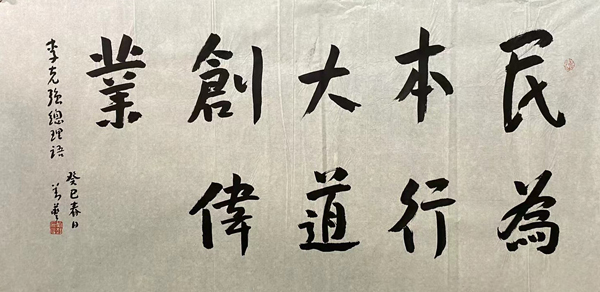 民為
本行
大道
創偉
業
李克強總理語
癸巳春日